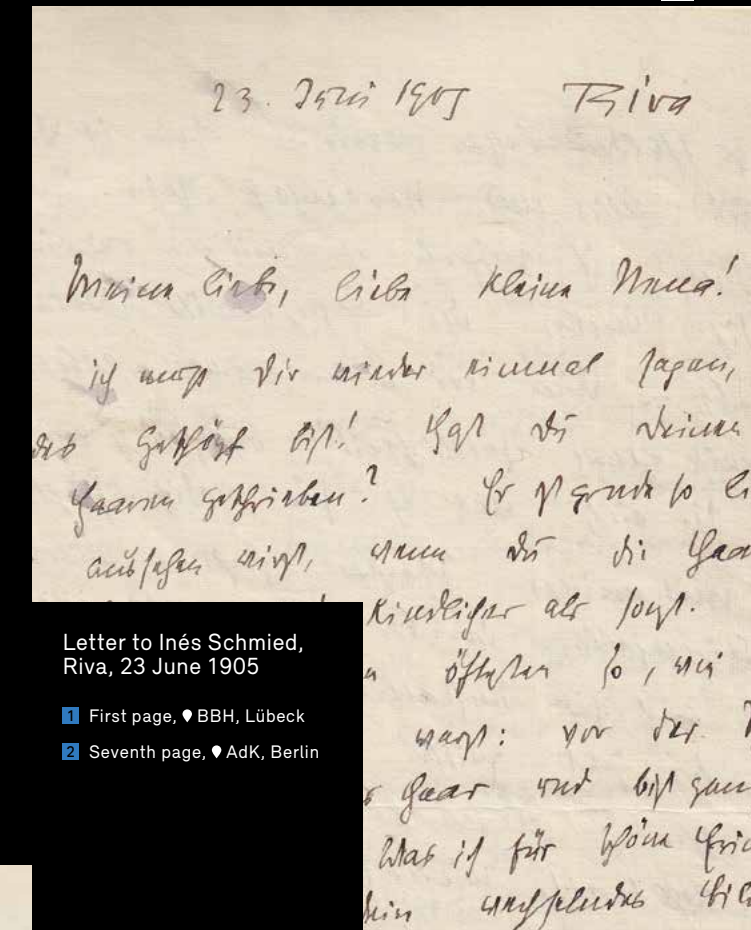 23. Juni 1905 Riva
Meine liebe, liebe kleine Nena!
ich muß Dir wieder einmal sagen,
Geschöpf bist! Hast Du Deinen
Haaren geschrieben? Er ist grade so
aussehen wirst, wenn Du die
kindlicher als sonst.
öftesten so, wie
warst: vor der
Haar und bist
Was ich für schöne
wechselndes
Letter to Inés Schmied,
Riva, 23 June 1905
1 First page, BBH, Lübeck
2 Seventh page, AdK, Berlin